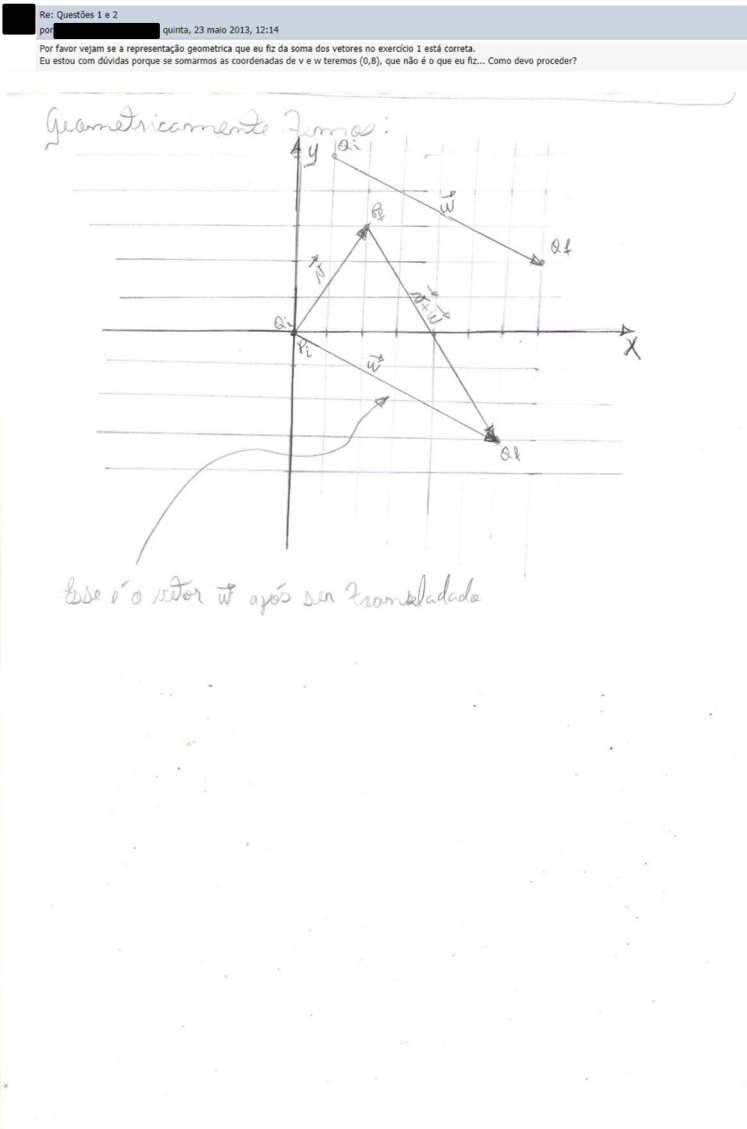 Re: Questões 1 e 2
por quinta, 23 maio 2013, 12:14
Por favor vejam se a representação geometrica que eu fiz da soma dos vetores no exercício 1 está correta.
Eu estou com dúvidas porque se somarmos as coordenadas de v e w teremos (0,8), que não é o que eu fiz... Como devo proceder?
Geometricamente temos:
y
Qi
w
Pf
Qf
v
v+w
Qi
Pi
X
w
Qf
Esse é o vetor w após ser transladado